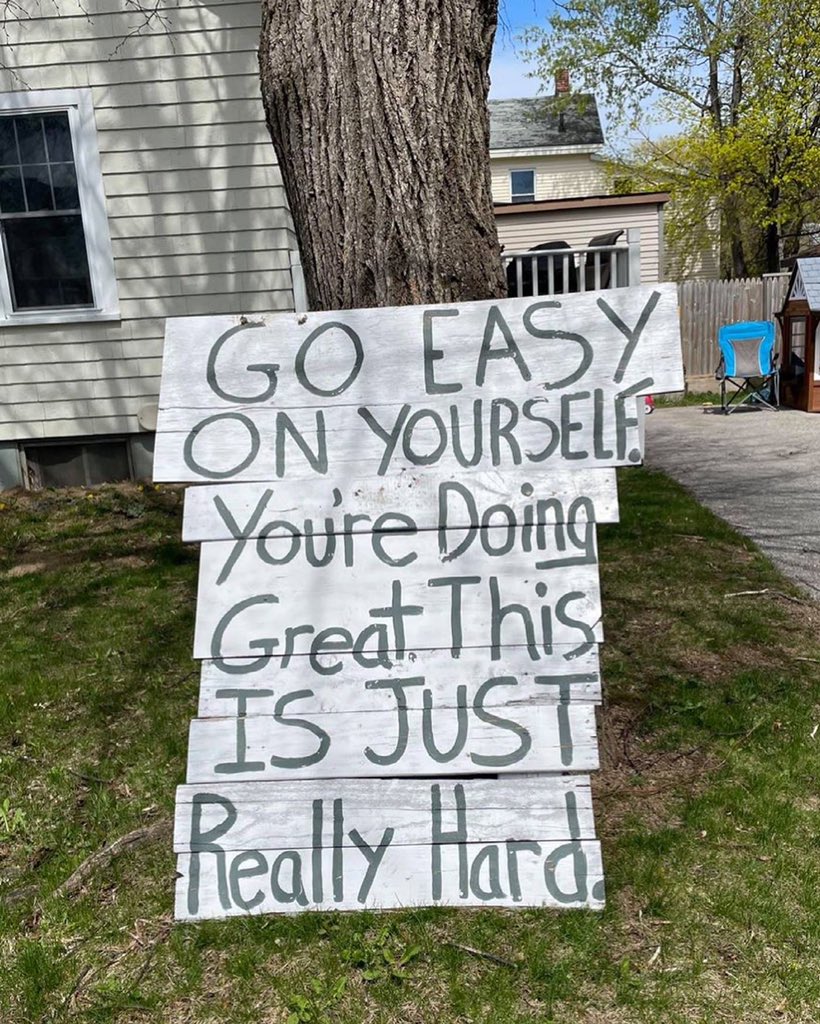 GO EASY
ON YOURSELF.
You're Doing
Great. This
IS JUST
Really Hard.